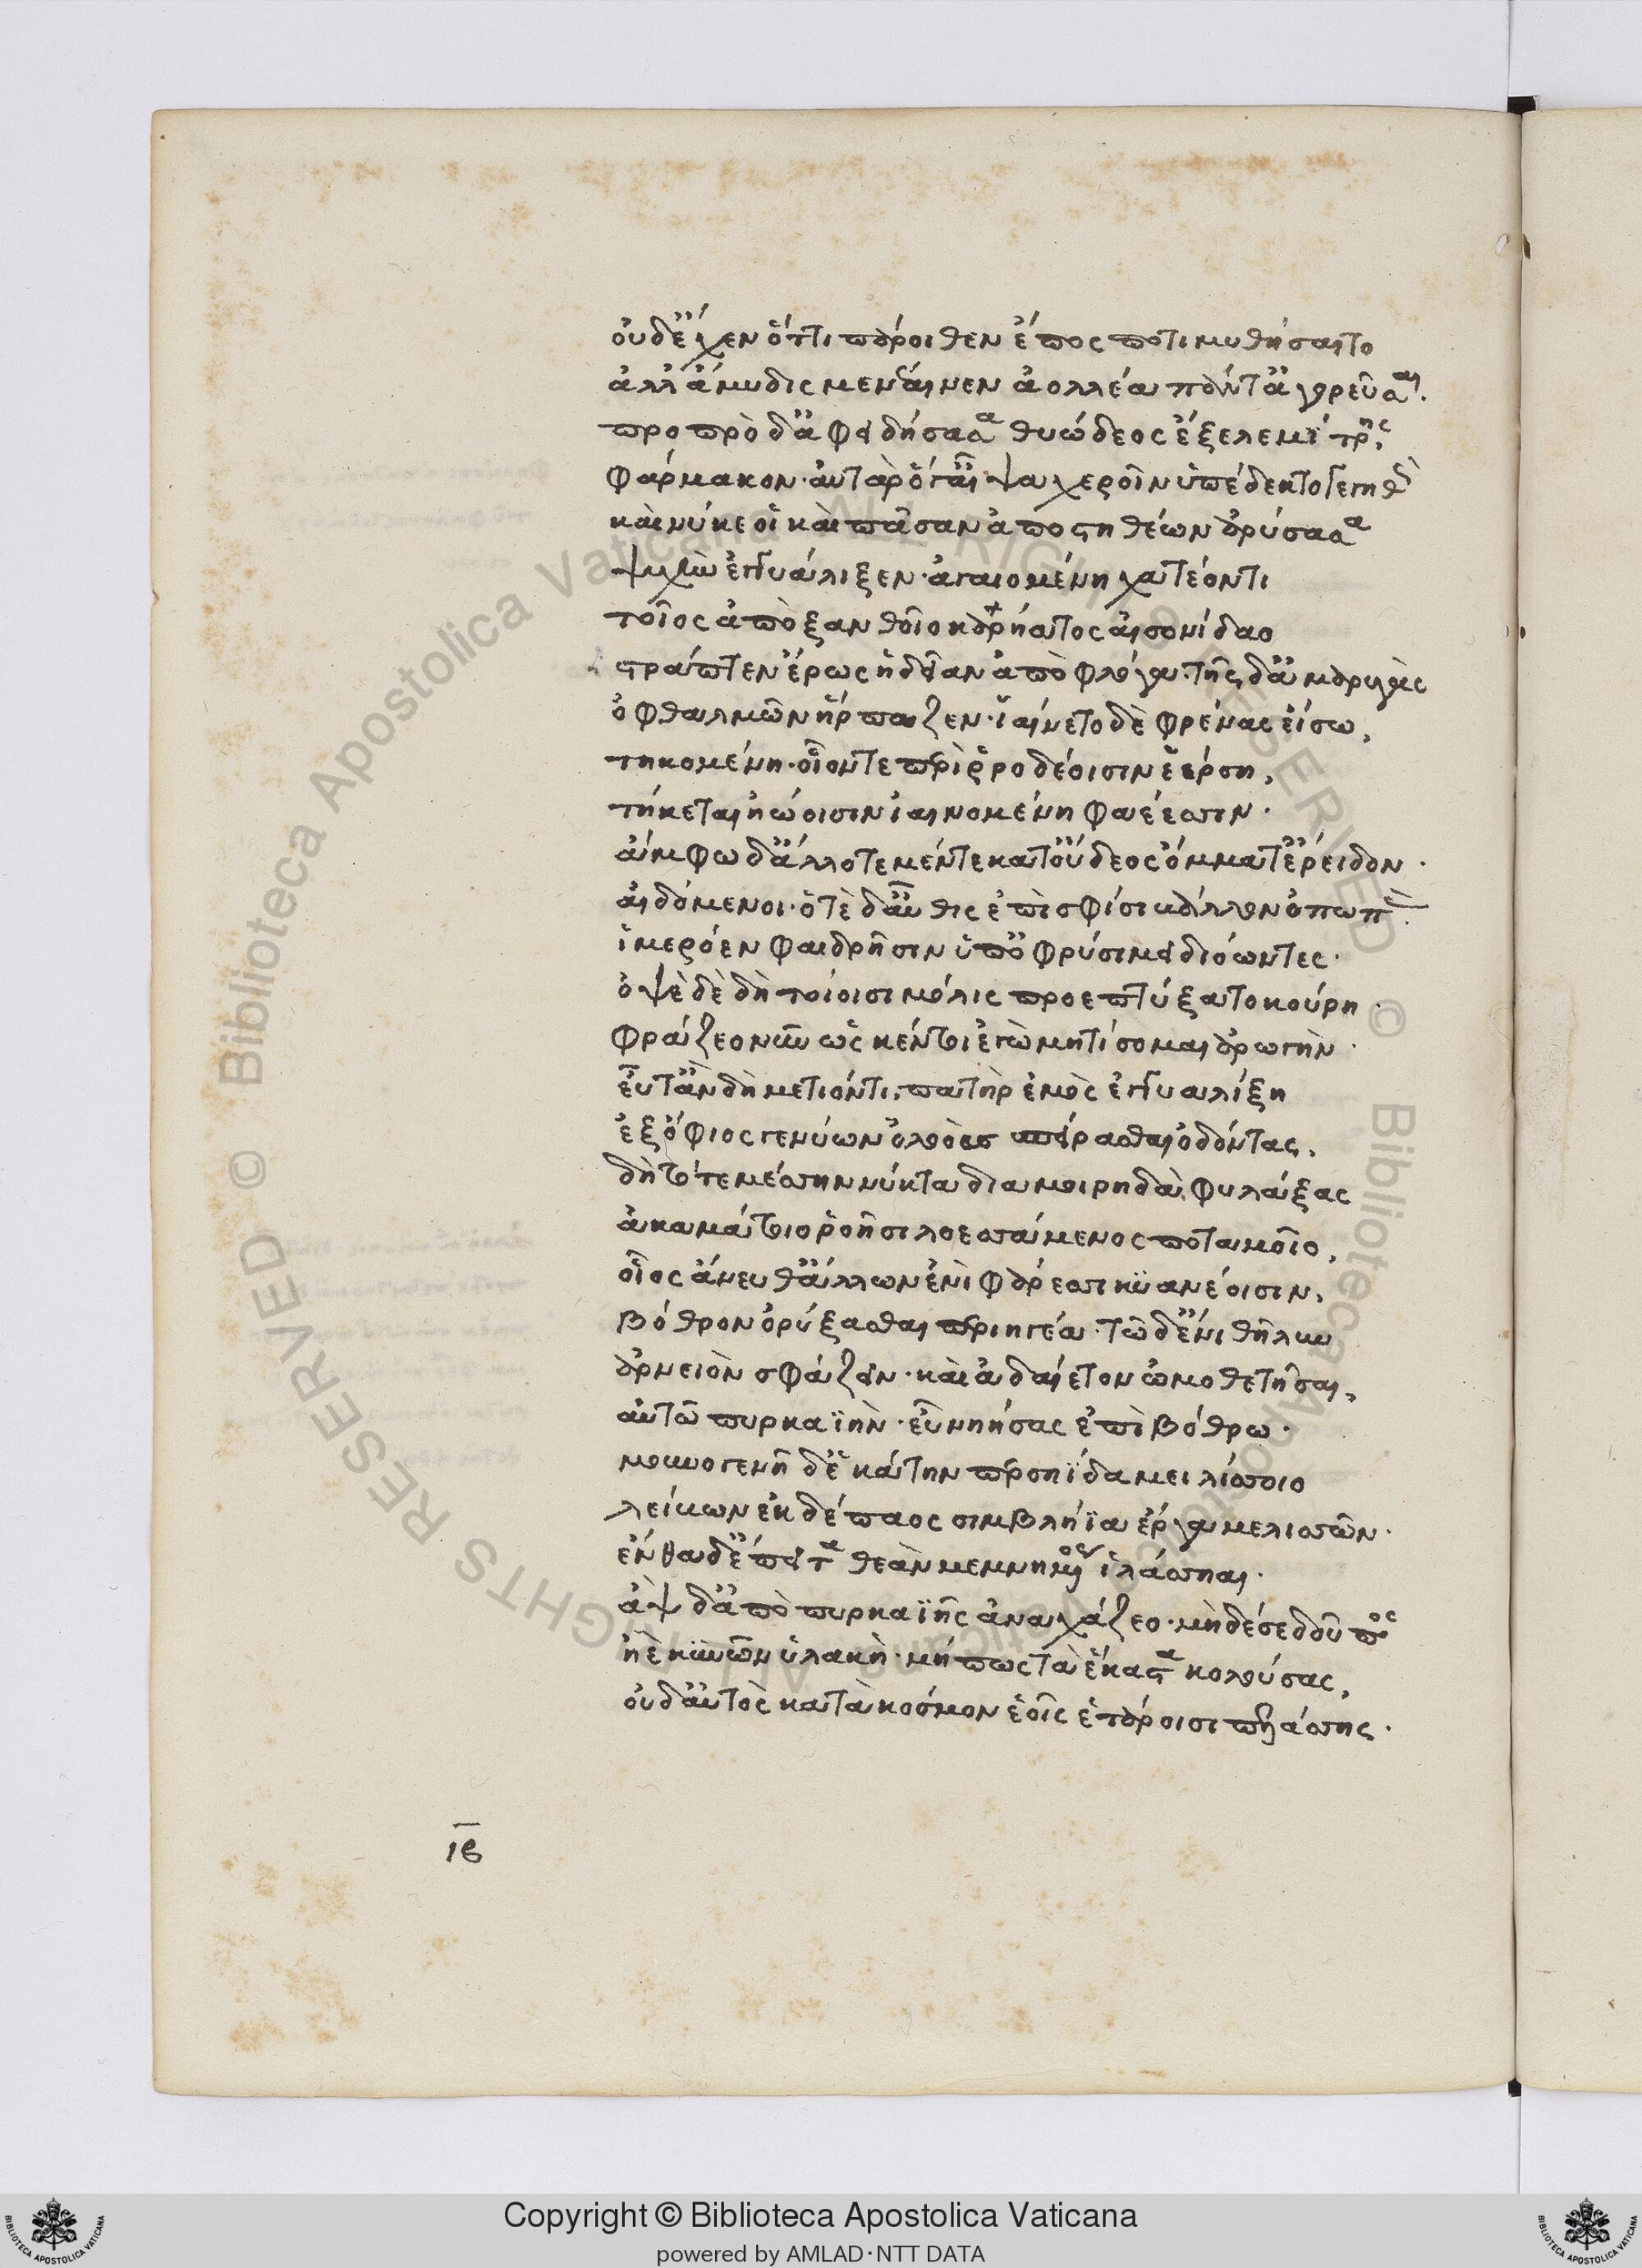 οὐδ' ἔχεν ὅττι πάροιθεν ἔπος ποτιμυθήσαιτο
ἀλλ' ἄμυδις μενέαινεν ἀολλέα πάντ' ἀγορεῦσαι.
προπρὸ δ' ἀφειδήσασα θυώδεος ἔξελε μίτρης,
φάρμακον· αὐτὰρ ὅγ' αἶψα χεροῖν ὑπέδεκτο γεγηθώς
καὶ νύ κε οἱ καὶ πᾶσαν ἀπο στηθέων ἀρύσασα
ψυχὴν ἐγγυάλιξεν· ἀγαιομένη χατέοντι
τοῖος ἀπὸ ξανθοῖο καρήατος αἰσονίδαο
στράπτεν ἔρως ἡδεῖαν ἀπὸ φλόγα· τῆς δ' ἀμαρυγὰς
ὀφθαλμῶν ἥρπαζεν· ἰαίνετο δὲ φρένας εἴσω,
τηκομένη· οἷόν τε περὶ ῥοδέοισιν ἐέρση,
τήκεται ἠώοισιν ἰαινομένη φαέεσσιν·
ἄμφω δ' ἄλλοτε μέν τε κατ' οὔδεος ὄμματ' ἔρειδον·
αἰδόμενοι· ὁτὲ δ' αὖθις ἐπὶ σφίσι βάλλον ὀπωπάς·
ἱμερόεν φαιδρῆσιν ὑπ' ὀφρύσι μειδιόωντες·
ὀψὲ δὲ δὴ τοίοισι μόλις προσπτύξατο κούρη·
φράζεο νῦν ὥς κέν τοι ἐγὼ μητίσομαι ἀρωγὴν·
εὖτ' ἂν δὴ μετιόντι, πατὴρ ἐμὸς ἐγγυαλίξη
ἐξ ὄφιος γενύων ὀλοὸυς σπείρασθαι ὀδόντας,
δὴ τότε μέσσην νύκτα διαμοιρηδὰ φυλάξας
ἀκαμάτοιο ῥοῆσι λοεσσάμενος ποταμοῖο,
οἶος ἄνευθ' ἄλλων ἐνὶ φάρεσι κϋανέοισιν,
βόθρον ὀρύξασθαι περιηγέα· τῶ δ' ἔνι θῆλυν
ἀρνειὸν σφάζειν· καὶ ἀδαίετον ὠμοθετῆσαι,
αὐτῶ πυρκαϊὴν· εὖ νηήσας ἐπὶ βόθρω·
μουνογενῆ δ' ἑκάτην περσηΐδα μειλίσσοιο
λείβων ἐκ δέπαος σιμβλήϊα ἔργα μελισσῶν·
ἔνθα δ' ἔπειτα θεὰν μεμνημένος ἱλάσσηαι·
ἂψ δ' ἀπὸ πυρκαϊῆς ἀναχάζεο· μὴ δέ σε δοῦπος
ἠὲ κυνῶν ὑλακὴ· μή πως τὰ ἕκαστα κολούσας,
οὐδ' αὐτὸς κατὰ κοσμον ἑοῖς ἑτάροισι πελάσσης·
ιβ
Copyright © Biblioteca Apostolica Vaticana
powered by AMLAD·NTT DATA